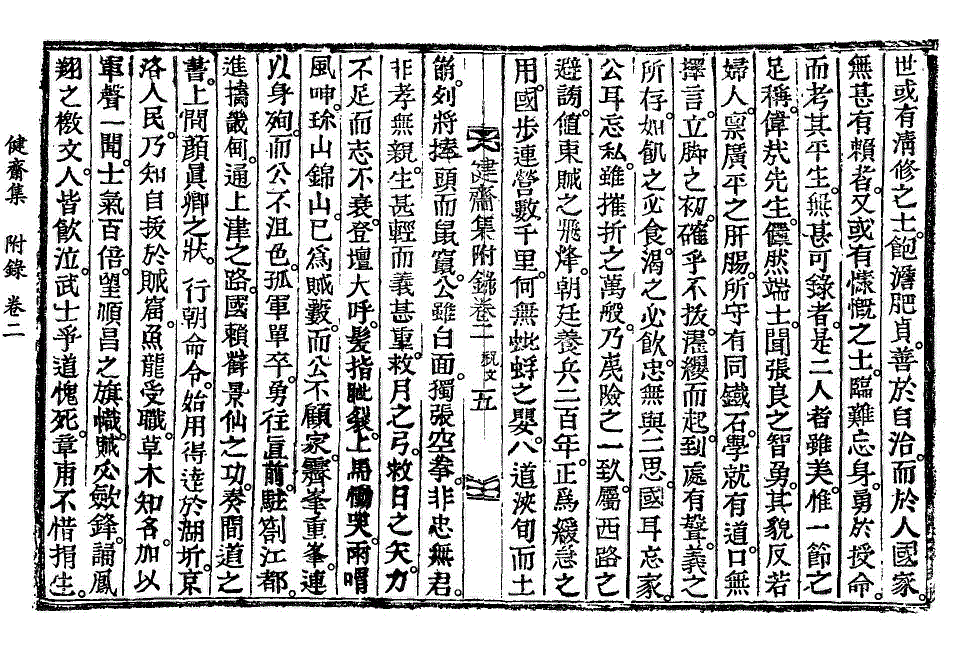 世或有淸修之士。飽澹肥貞。善於自治。而於人國家。
無甚有賴者。又或有慷慨之士。臨難忘身。勇於授命。
而考其平生。無甚可錄者。是二人者雖美。惟一節之
足稱。偉㢤先生。儼然端士。聞張良之智勇。其貌反若
婦人。稟廣平之肝腸。所守有同鐵石。學就有道。口無
擇言。立脚之初。確乎不拔。濯纓而起。到處有聲。義之
所存。如飢之必食。渴之必飮。忠無與二思。國耳忘家。
公耳忘私。雖摧折之萬般。乃夷險之一致。屬西路之
避詢。値東賊之飛烽。朝廷養兵二百年。正爲緩急之
用。國步連營數千里。何無蚍蜉之嬰。八道浹旬而土
健齋集附錄卷二 祝文 五
崩。列將捧頭而鼠竄。公雖白面。獨張空拳。非忠無君。
非孝無親。生甚輕而義甚重。救月之弓。救日之矢。力
不足而志不衰。登壇大呼。髮指眦裂。上馬慟哭。雨喟
風呻。珎山錦山。已爲賊藪。而公不顧家。霽峯重峯。連
以身殉。而公不沮色。孤軍單卒。勇徃直前。駐劄江都。
進擣畿甸。逼上津之路。國賴辭景仙之功。奏間道之
書。上問顔眞卿之狀。行朝命令。始用得達於湖圻。京
洛人民。乃知自拔於賊窟。魚龍受職。草木知名。加以
軍聲一聞。士氣百倍。望順昌之旗幟。賊必歛鋒。誦鳳
翔之檄文。人皆飮泣。武士爭道愧死。章甫不惜捐生。
健齋集 附錄 卷二